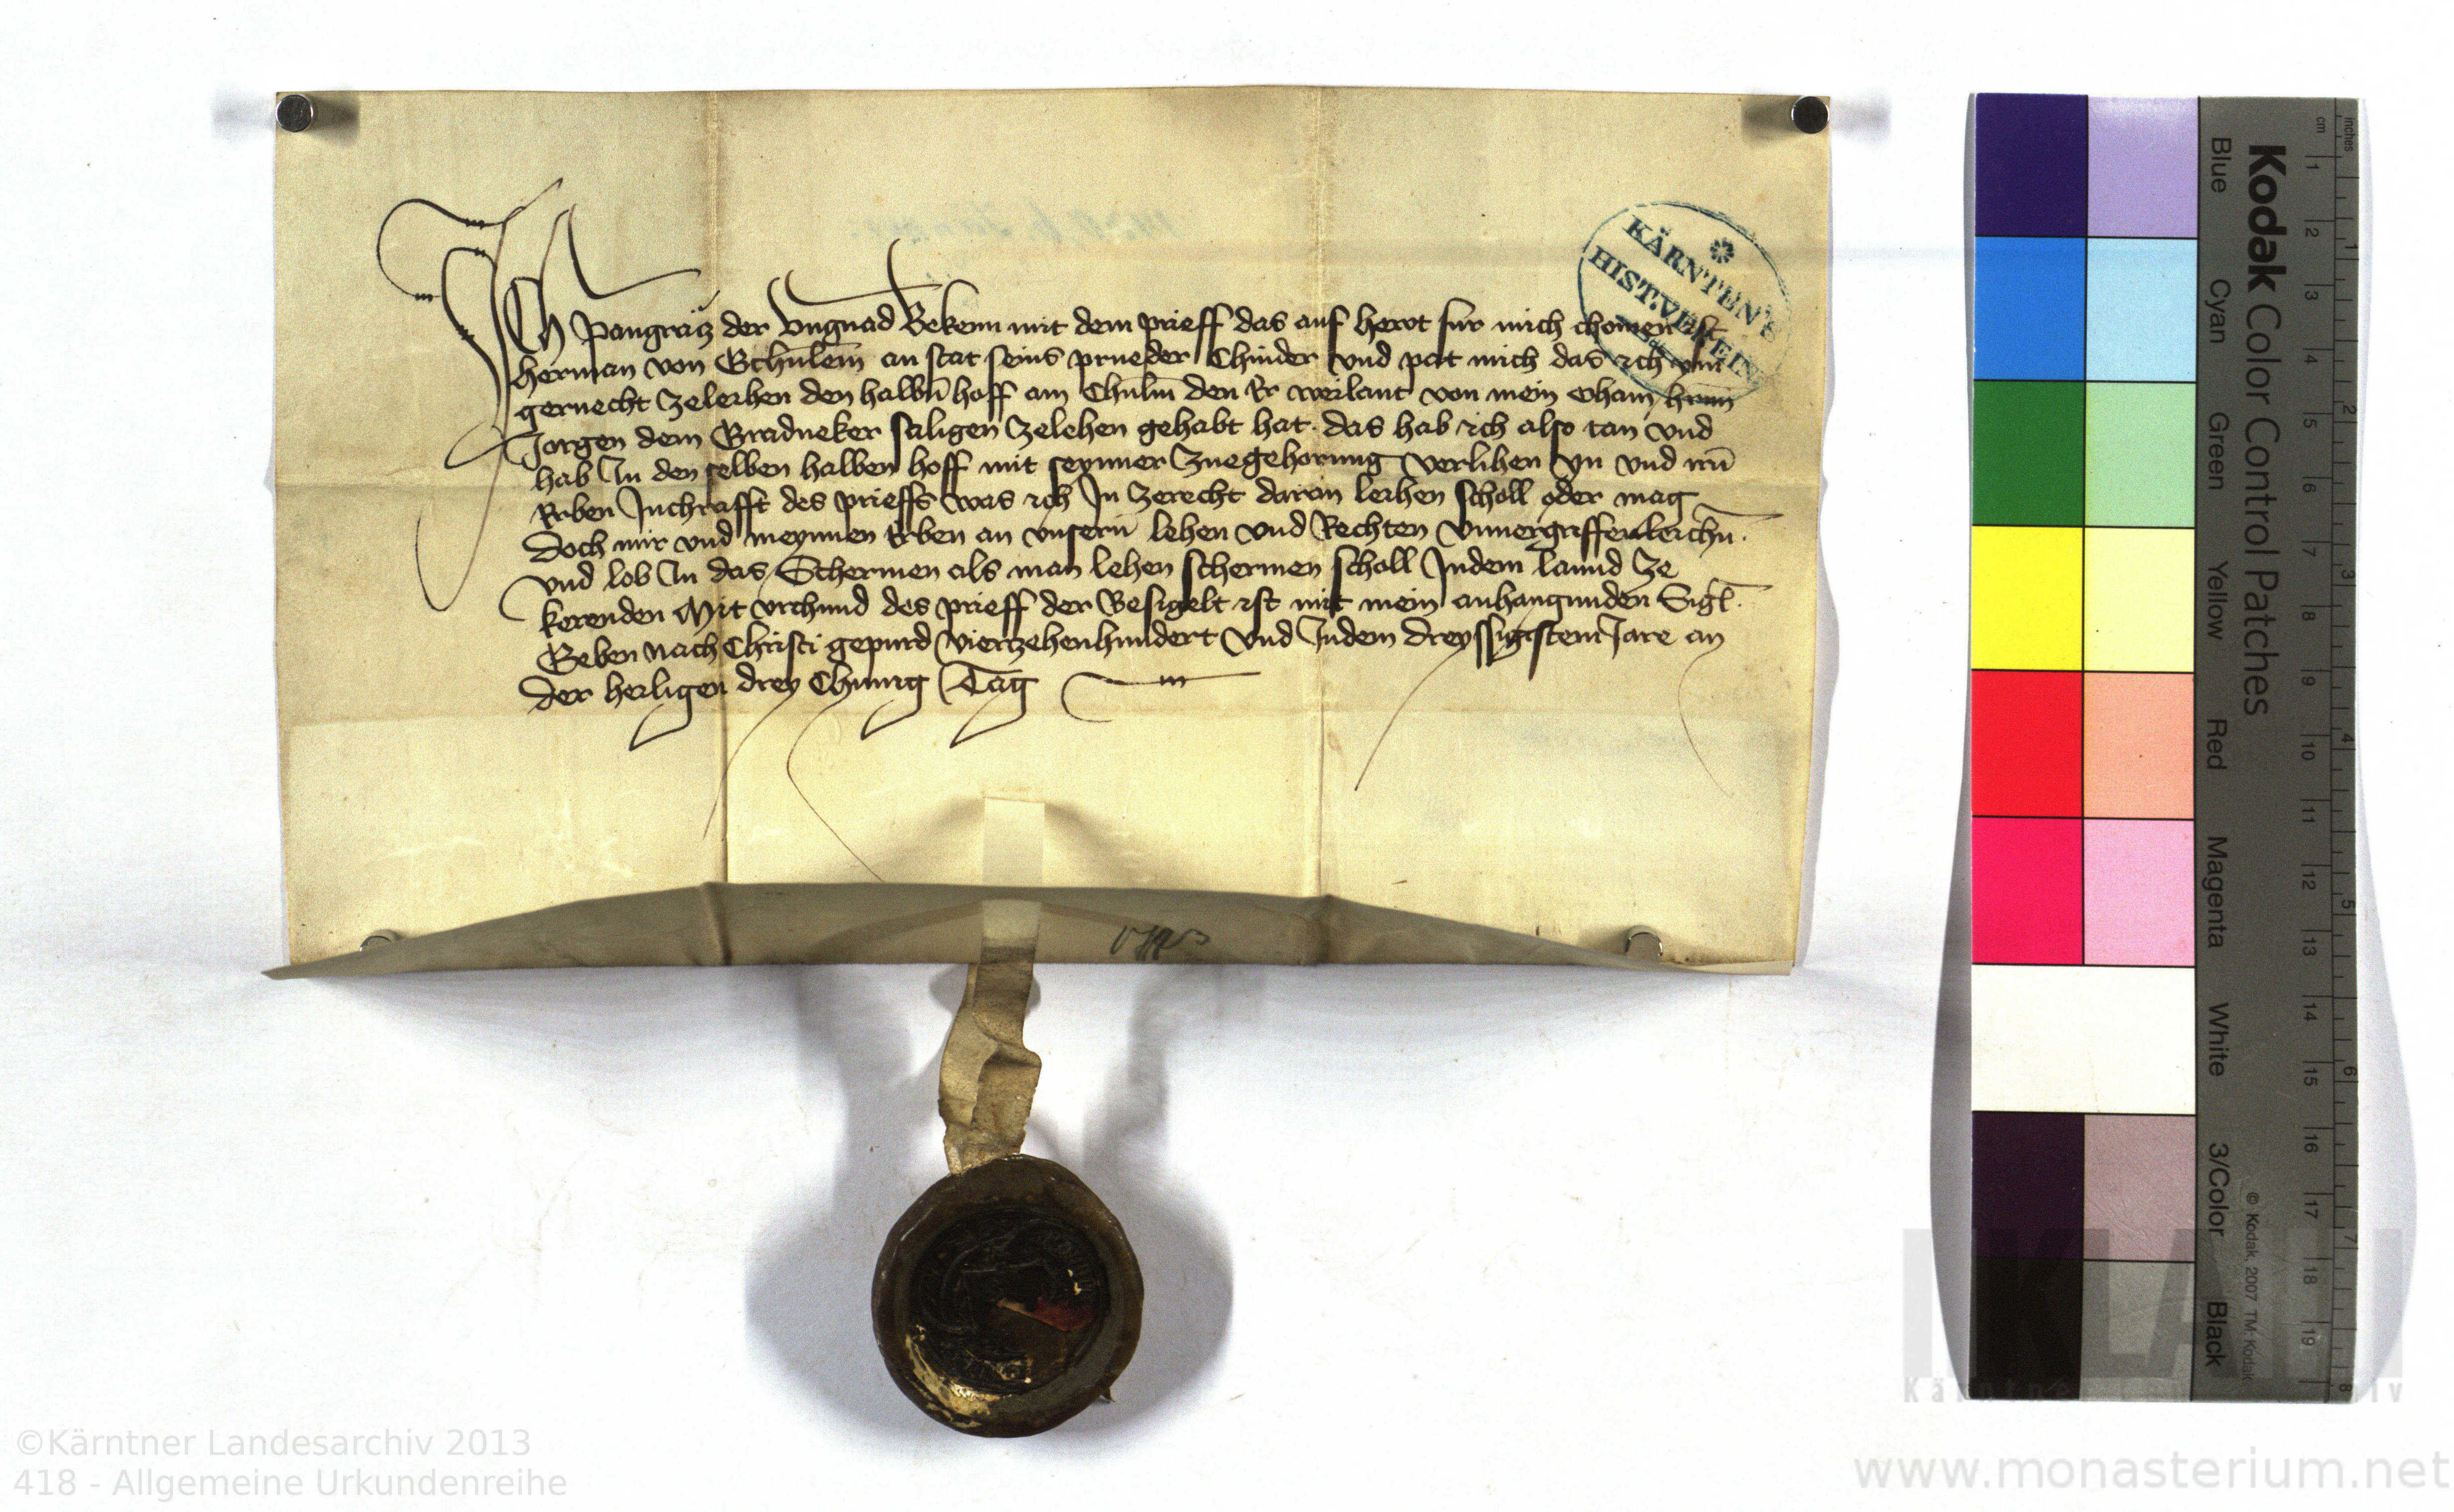 Ich Pangräcz der Ungnad Bekenn mit dem prieff das auf hewt für mich chomen ist
herman von Gchulem an stat seins prueder Chinder Vnd pat mich das ich ym
geruecht Zeleihen den halbn̄ hoff am Chulm̄ den Er weilant von mein oham hern̄
Jorgen dem Gradneker saligen Zelehen gehabt hat. das hab ich also tan vnd
hab In den selben halben hoff mit seynner Zuegehorung verlihen yn vnd irn̄
Erben Inchrafft des prieffs was ich In Zerecht daran leihen scholl oder mag
Doch mir vnd meynnen Erben an vnsern̄ lehen vnd Rechten Vnuergriffenleichn̄.
vnd lob In das Schermen als man lehen schermen scholl Indem lannd Ze
kerenden Mit vrchund des prieff der Besigelt ist mit mein anhangunden Sigl̄.
Geben nach Christi gepurd Vierzehenhundert Vnd Indem dreyssigistem Jare an
der heiligen drey Chunig Tag
KÄRNTEN'S
HIST.VEREIN
Kodak Color Control Patches
Blue Cyan Green Yellow Red Magenta White 3/Color Black
cm 1 2 3 4 5 6 7 8 9 10 11 12 13 14 15 16 17 18 19
inches 1 2 3 4 5 6 7 8
© Kodak, 2007 TM: Kodak
KLA
Kärntner Landesarchiv
©Kärntner Landesarchiv 2013
418 - Allgemeine Urkundenreihe
www.monasterium.net